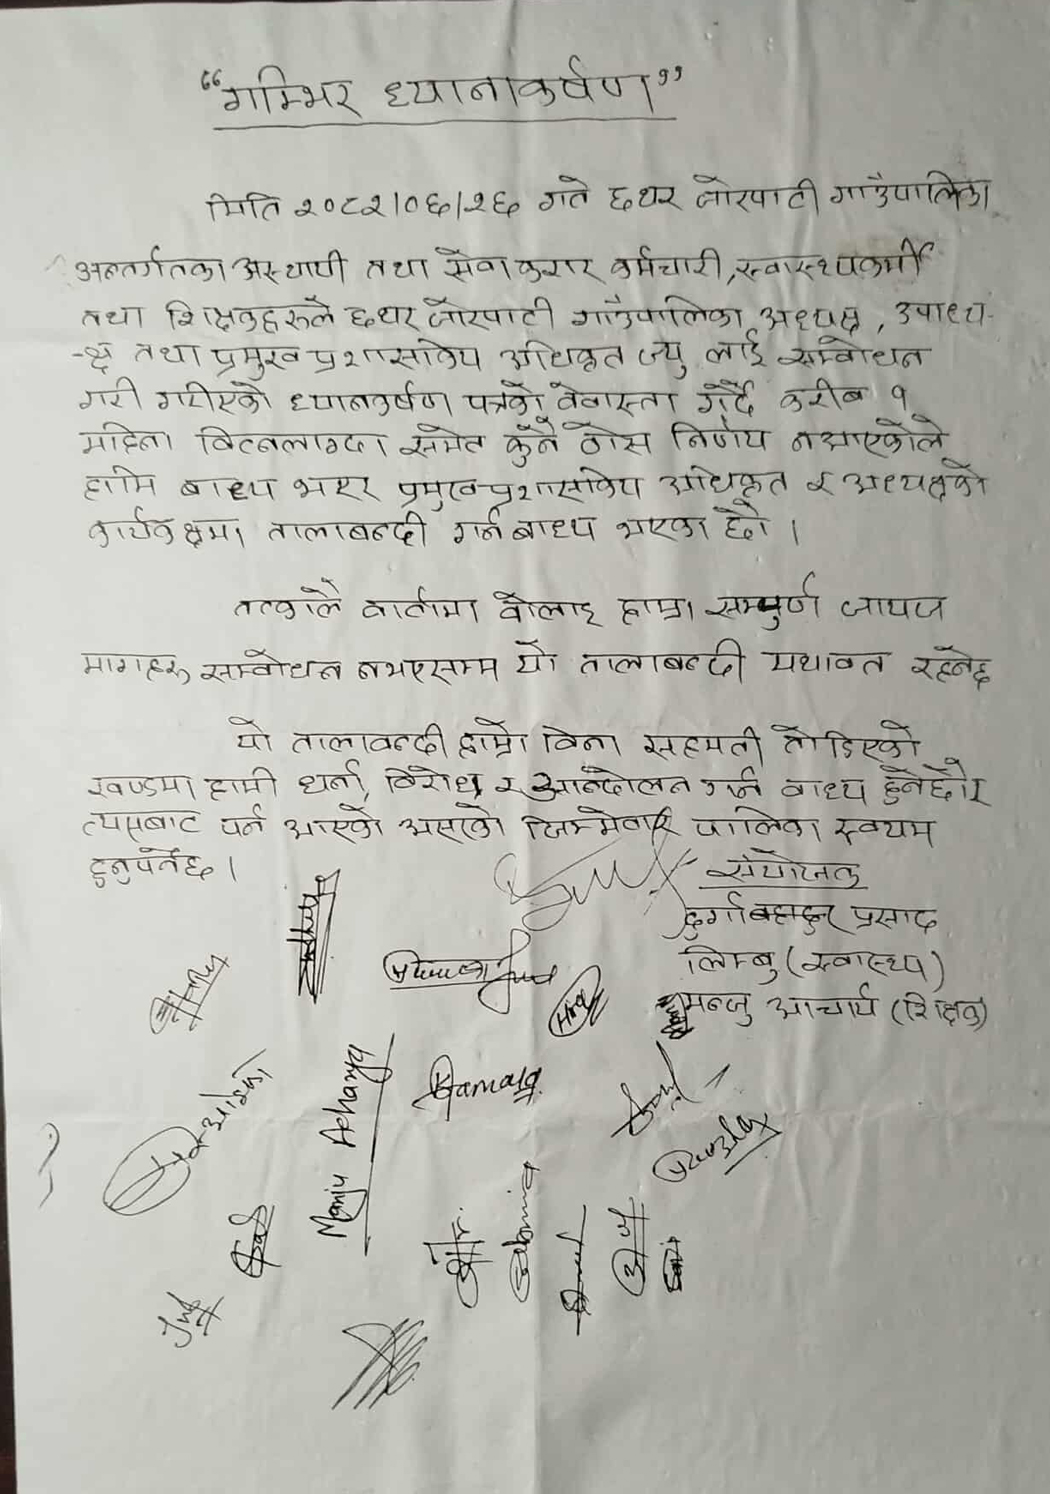 “गम्भिर ध्यानाकर्षण”
मिति २०८२।०६।२६ गते छथर जोरपाटी गाउँपालिका
अन्तर्गतका अस्थायी तथा सेवा करार कर्मचारी, स्वास्थ्यकर्मी
तथा शिक्षकहरुले छथर जोरपाटी गाउँपालिका अध्यक्ष, उपाध्य-
-क्ष तथा प्रमुख प्रशासकिय अधिकृत ज्यु लाई सम्वोधन
गरी गरीएको ध्यानकर्षण पत्रको वेवास्ता गर्दै करीब १
महिना वित्नलाग्दा समेत कुनै ठोस निर्णय नआएकोले
हामि बाध्य भएर प्रमुख प्रशासकिय अधिकृत र अध्यक्षको
कार्यकक्षमा तालाबन्दी गर्न बाध्य भएका छौ ।
तत्कालै वार्तामा वोलाइ हाम्रा सम्पुर्ण जायज
मागहरु सम्वोधन नभएसम्म यो तालाबन्दी यथावत रहनेछ
यो तालावन्दी हाम्रो विना सहमती तोडिएको
खण्डमा हामी धर्ना, विरोध र आन्दोलन गर्न वाध्य हुनेछौ र
त्यसबाट पर्न आएको असरको जिम्मेवार पालिका स्वयम
हुनुपर्नेछ ।
संयोजक
दुर्गाबहादुर प्रसाद
लिम्बु (स्वास्थ्य)
मन्जु आचार्य (शिक्षक)
Kamala
Manju Acharya
Sabmina